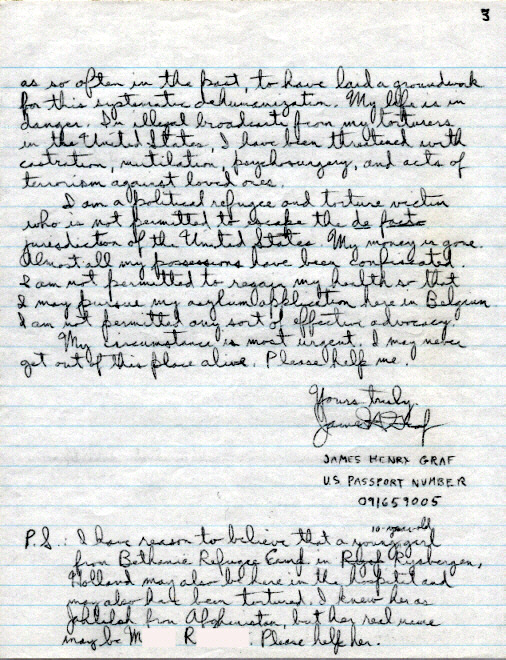 3
as so often in the past, to have laid a groundwork
for this systematic dehumanization. My life is in
danger. In illegal broadcasts from my torturers
in the United States, I have been threatened with
castration, mutilation, psychosurgery, and acts of
terrorism against loved ones.
I am a political refugee and torture victim
who is not permitted to escape the de facto
jurisdiction of the United States. My money is gone.
Almost all my possessions have been confiscated.
I am not permitted to regain my health so that
I may pursue my asylum application here in Belgium
I am not permitted any sort of effective advocacy.
My circumstance is most urgent. I may never
get out of this place alive. Please help me.
Yours truly,
James H Graf
JAMES HENRY GRAF
U.S. PASSPORT NUMBER
091659005
10-year-old
P.S.: I have reason to believe that a young girl
from Bethanie Refugee in Rijsbergen,
Holland may also be here in the hospital and
may also have been tortured. I knew her as
from Afghanistan, but her real name
may be M R . Please help her.